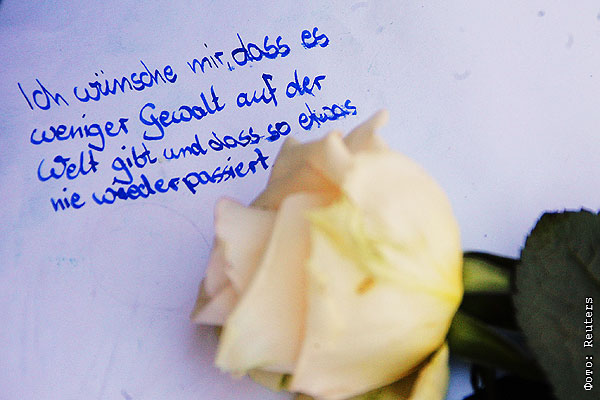 Ich wünsche mir, dass es
weniger Gewalt auf der
Welt gibt und dass so etwas
nie wieder passiert
Фото: Reuters